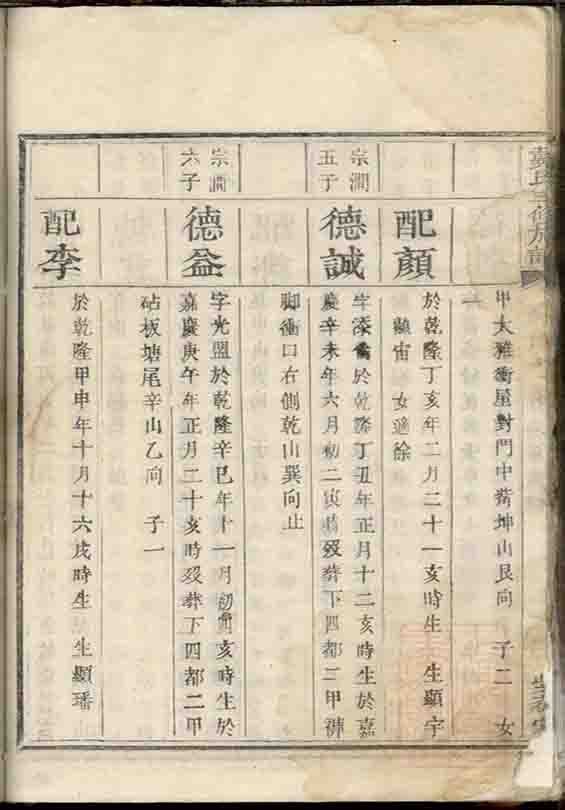 甲大雅衝屋對門中嘴坤山艮向 子二 女
一
配顏
於乾隆丁亥年二月二十一亥時生 生顯宇
顯宙 女適徐
宗澗
五子
德誠
字添 於乾隆丁丑年正月十二亥時生於嘉
慶辛未年六月初二寅時歿葬下四都二甲褲
脚衝口右側乾山巽向止
宗澗
六子
德益
字光盟於乾隆辛巳年十一月初 亥時生於
嘉慶庚午年正月二十亥時歿葬下四都二甲
砧板塘尾辛山乙向 子一
配李
於乾隆甲申年十月十六戌時生 生顯璠